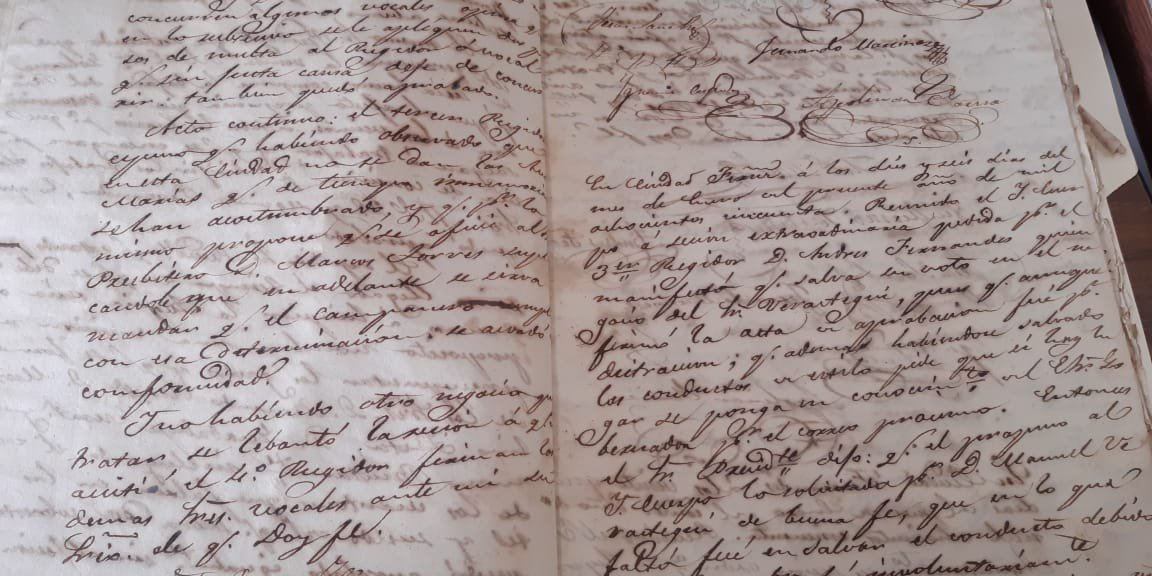 concurrir algunos vocales
en lo subsesivo se le apliquen dos
sos de multa al Regidor ó vocal
q.e sin justa causa deje de concu
rir: tambien quedó aprobado.
Acto continuo: el tercer Regidor
espuso q.e habiendo observado que
en esta Ciudad no se dan las
Marias q.e de tiempo inmemorial
se han acostumbrado, y q.e p.r lo
mismo propone q.e se oficie al
Presbitero D. Marcos Torres supli
candole que en adelante se sirva
mandar q.e el campanero
con esa determinacion. se acordó
conformidad.
Y no habiendo otro negocio que
tratar se lebantó la secion á q.e
asistió el 4.º Regidor firman los
demas Sres. vocales ante mi el
Srio. de q.e Doy fé.
Fernando Martinez
En Ciudad Fern.z á los dies y seis dias del
mes de Enero del presente año de mil
ochocientos cincuenta. Reunido el Y. Cuer
po a secion extraordinaria pedida p.r el
3.er Regidor D. Andres Fernandes quien
manifestó q.e salva su voto en el ne
gocio del Sr. Verastegui, pues q.e aunque
firmó la acta en aprobacion fué p.r
distracion; q.e ademas habiendose salvado
los conductos en estilo pide que si hay lu
gar se ponga en conocim.to del E. Sr. Go
bernador p.r el correo procsimo. Entonces
el Sr. Presid.te dijo: q.e el propuso al
Y. Cuerpo lo solicitado p.r D. Manuel Ve
rastegui de buena fe, que en lo que
faltó fué en salvar el conducto debido
involuntariam.te